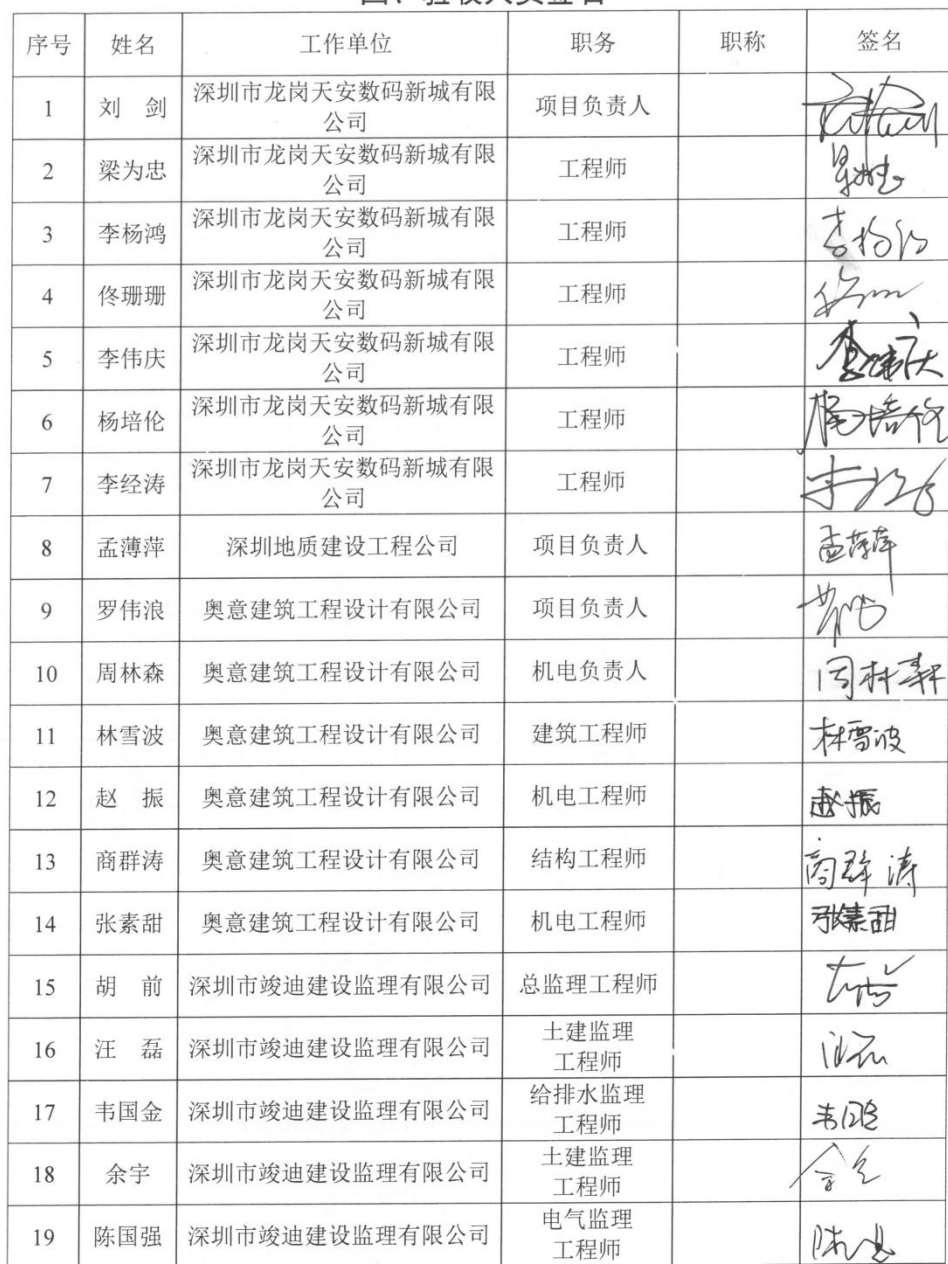 四、验收人员签名
序号 姓名 工作单位 职务 职称 签名
1 刘 剑 深圳市龙岗天安数码新城有限 项目负责人
公司
2 梁为忠 深圳市龙岗天安数码新城有限 工程师
公司
3 李杨鸿 深圳市龙岗天安数码新城有限 工程师
公司
4 佟珊珊 深圳市龙岗天安数码新城有限 工程师
公司
5 李伟庆 深圳市龙岗天安数码新城有限 工程师 李伟庆
公司
6 杨培伦 深圳市龙岗天安数码新城有限 工程师 杨培伦
公司
7 李经涛 深圳市龙岗天安数码新城有限 工程师
公司
8 孟薄萍 深圳地质建设工程公司 项目负责人 孟薄萍
9 罗伟浪 奥意建筑工程设计有限公司 项目负责人
10 周林森 奥意建筑工程设计有限公司 机电负责人
11 林雪波 奥意建筑工程设计有限公司 建筑工程师 林雪波
12 赵 振 奥意建筑工程设计有限公司 机电工程师 赵振
13 商群涛 奥意建筑工程设计有限公司 结构工程师 商群涛
14 张素甜 奥意建筑工程设计有限公司 机电工程师 张素甜
15 胡 前 深圳市竣迪建设监理有限公司 总监理工程师
16 汪 磊 深圳市竣迪建设监理有限公司 土建监理
工程师
17 韦国金 深圳市竣迪建设监理有限公司 给排水监理
工程师
18 余宇 深圳市竣迪建设监理有限公司 土建监理
工程师
19 陈国强 深圳市竣迪建设监理有限公司 电气监理
工程师